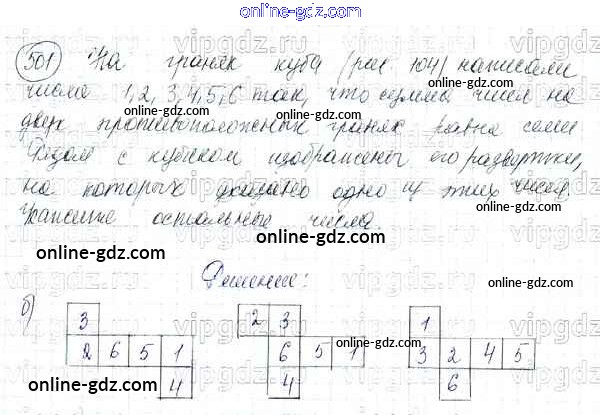 online-gdz.com
501 На гранях куба (рис. 104) написали
числа 1, 2, 3, 4, 5, 6 так, что сумма чисел на
двух противоположных гранях равна семи
Рядом с кубиком изображены его развертки,
на которых указано одно из этих чисел.
Укажите остальные числа.
online-gdz.com
online-gdz.com
online-gdz.com
online-gdz.com
online-gdz.com
Решение:
online-gdz.com
б)
3 2 3 1
2 6 5 1 6 5 1 3 2 4 5
4 4 6
online-gdz.com
online-gdz.com
online-gdz.com